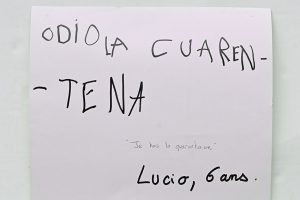 ODIO LA CUAREN-
- TENA
"Je hais la quarantaine"
Lucio, 6 ans.